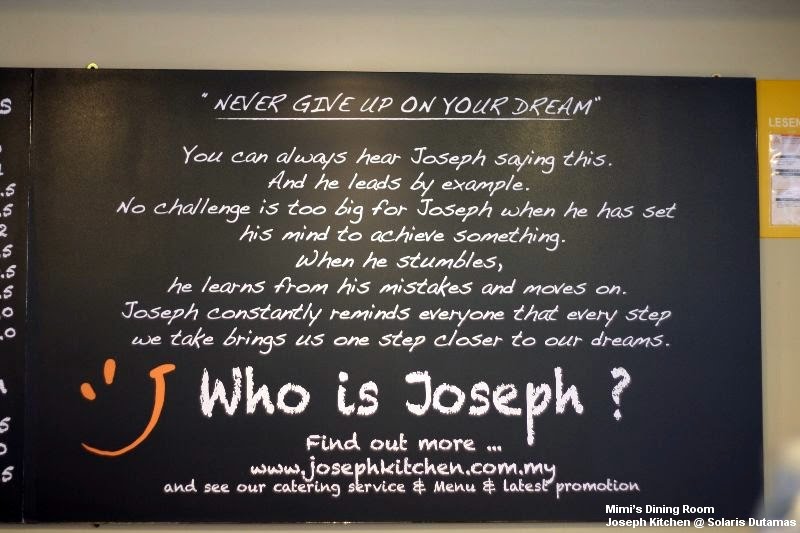 "NEVER GIVE UP ON YOUR DREAM"
You can always hear Joseph saying this.
And he leads by example.
No challenge is too big for Joseph when he has set
his mind to achieve something.
When he stumbles,
he learns from his mistakes and moves on.
Joseph constantly reminds everyone that every step
we take brings us one step closer to our dreams.
Who is Joseph ?
Find out more ...
www.josephkitchen.com.my
and see our catering service & Menu & latest promotion
LESEN
Mimi's Dining Room
Joseph Kitchen @ Solaris Dutamas